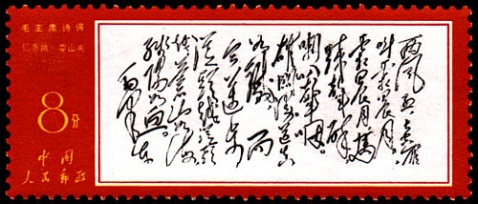 毛主席诗词
忆秦娥·娄山关
8分
中国
人民邮政
西风烈长空雁
叫霜晨月
霜晨月马
蹄声碎
喇叭声咽
雄关漫道真
如铁而
今迈步
从头越从头
越苍山如海
残阳如血
毛泽东